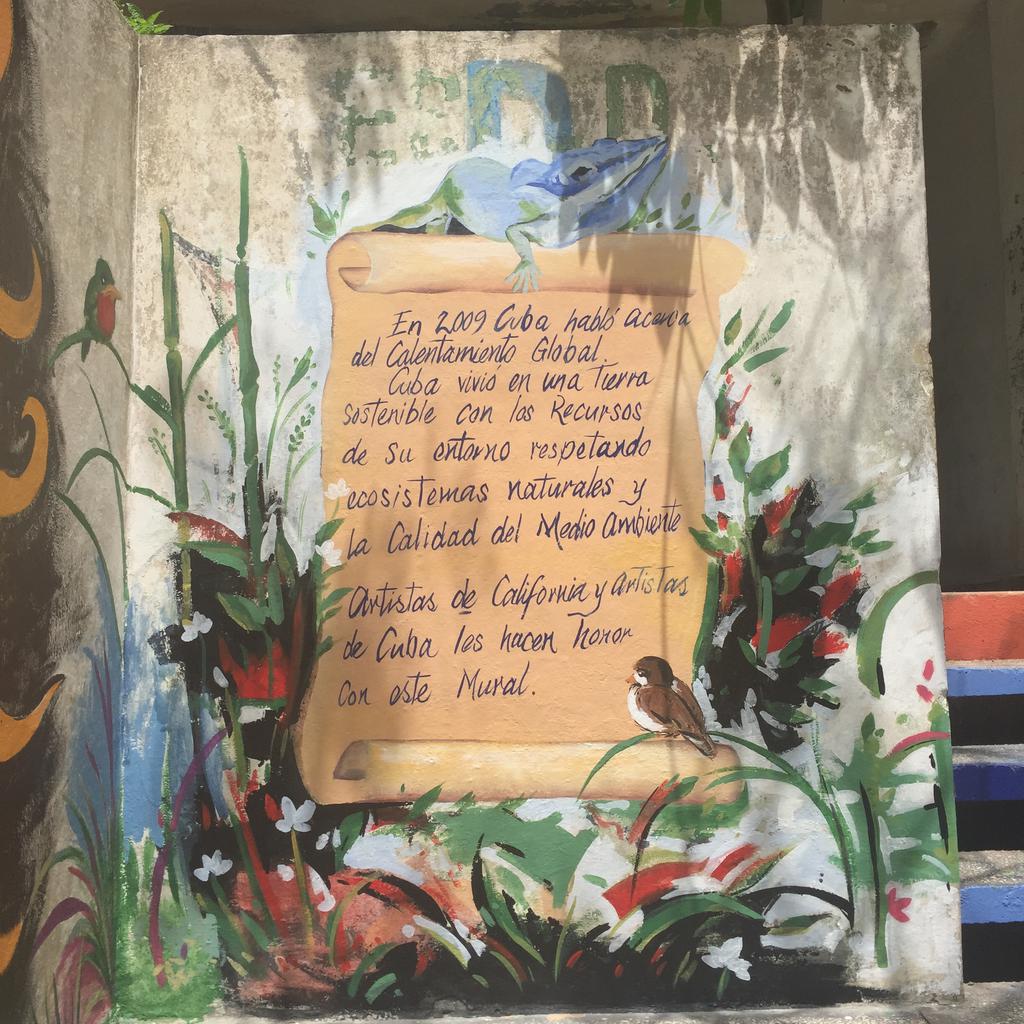 En 2009 Cuba habló acerca
del Calentamiento Global.
Cuba vivió en una Tierra
sostenible con los Recursos
de su entorno respetando
ecosistemas naturales y
la Calidad del Medio Ambiente
Artistas de California y Artistas
de Cuba les hacen honor
Con este Mural.